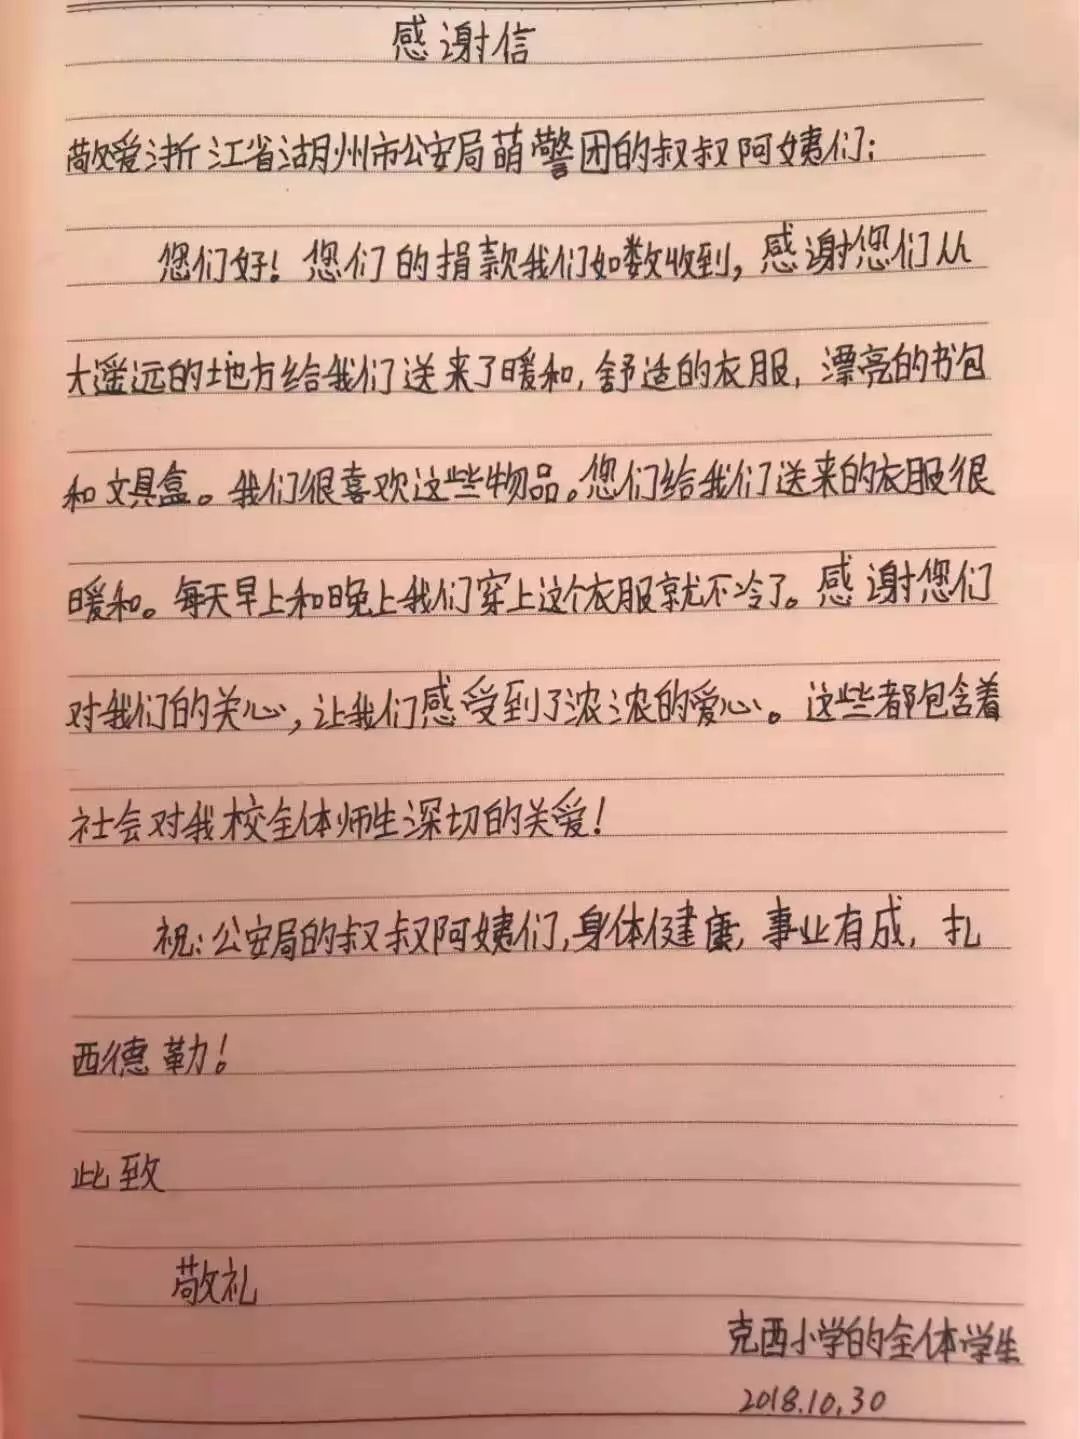 感谢信
敬爱浙江省湖州市公安局萌警团的叔叔阿姨们:
您们好!您们的捐款我们如数收到,感谢您们从
大遥远的地方给我们送来了暖和,舒适的衣服,漂亮的书包
和文具盒。我们很喜欢这些物品。您们给我们送来的衣服很
暖和。每天早上和晚上我们穿上这个衣服就不冷了。感谢您们
对我们的关心,让我们感受到了浓浓的爱心。这些都包含着
社会对我校全体师生深切的关爱!
祝:公安局的叔叔阿姨们,身体健康,事业有成,扎
西德勒!
此致
敬礼
克西小学的全体学生
2018.10.30